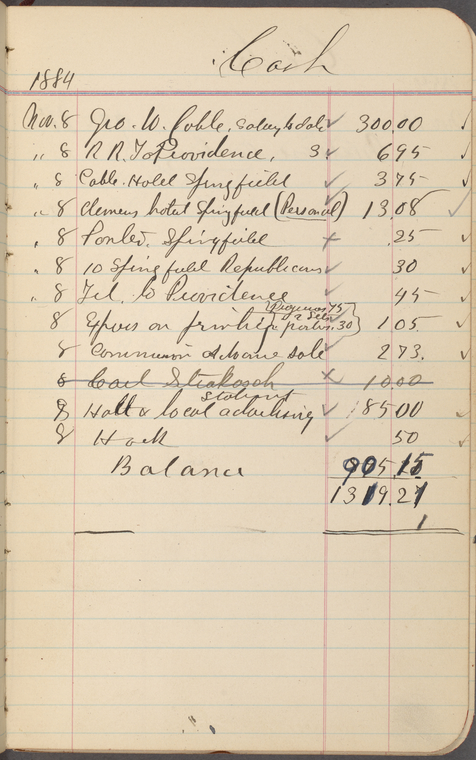 Cash
1884
Nov. 8 Geo. W. Cable, Salary to date ✓ 300.00 ✓
" 8 R R To Providence, 3 ✓ 6 95 ✓
" 8 Cable. Hotel Springfield ✓ 3 75 ✓
" 8 Clemens hotel Springfield (Personal) ✓ 13.08 ✓
" 8 Porter. Springfield + .25 ✓
" 8 10 Springfield Republicans ✓ 30 ✓
" 8 Tel. to Providence ✓ 45 ✓
Programs 75
8 Express on printing 30 1 05 ✓
8 Commission Advance sale ✓ 2 73. ✓
8 Carl Strakosch × 10 00
8 Hall & local advertising ✓ 85 00 ✓
8 Hack ✓ 50 ✓
Balance 905.15
1319.21
1